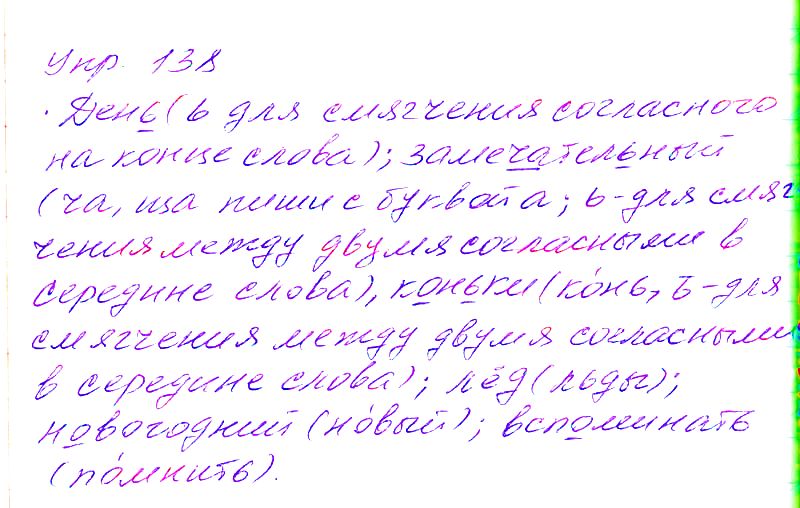 Упр. 138
День (ь для смягчения согласного
на конце слова); замечательный
(ча, ща пиши с буквой а; ь-для смяг
чения между двумя согласными в
середине слова), коньки (ко́нь, ь-для
смягчения между двумя согласными
в середине слова); лёд (льды);
новогодний (но́вый); вспоминать
(по́мнить).